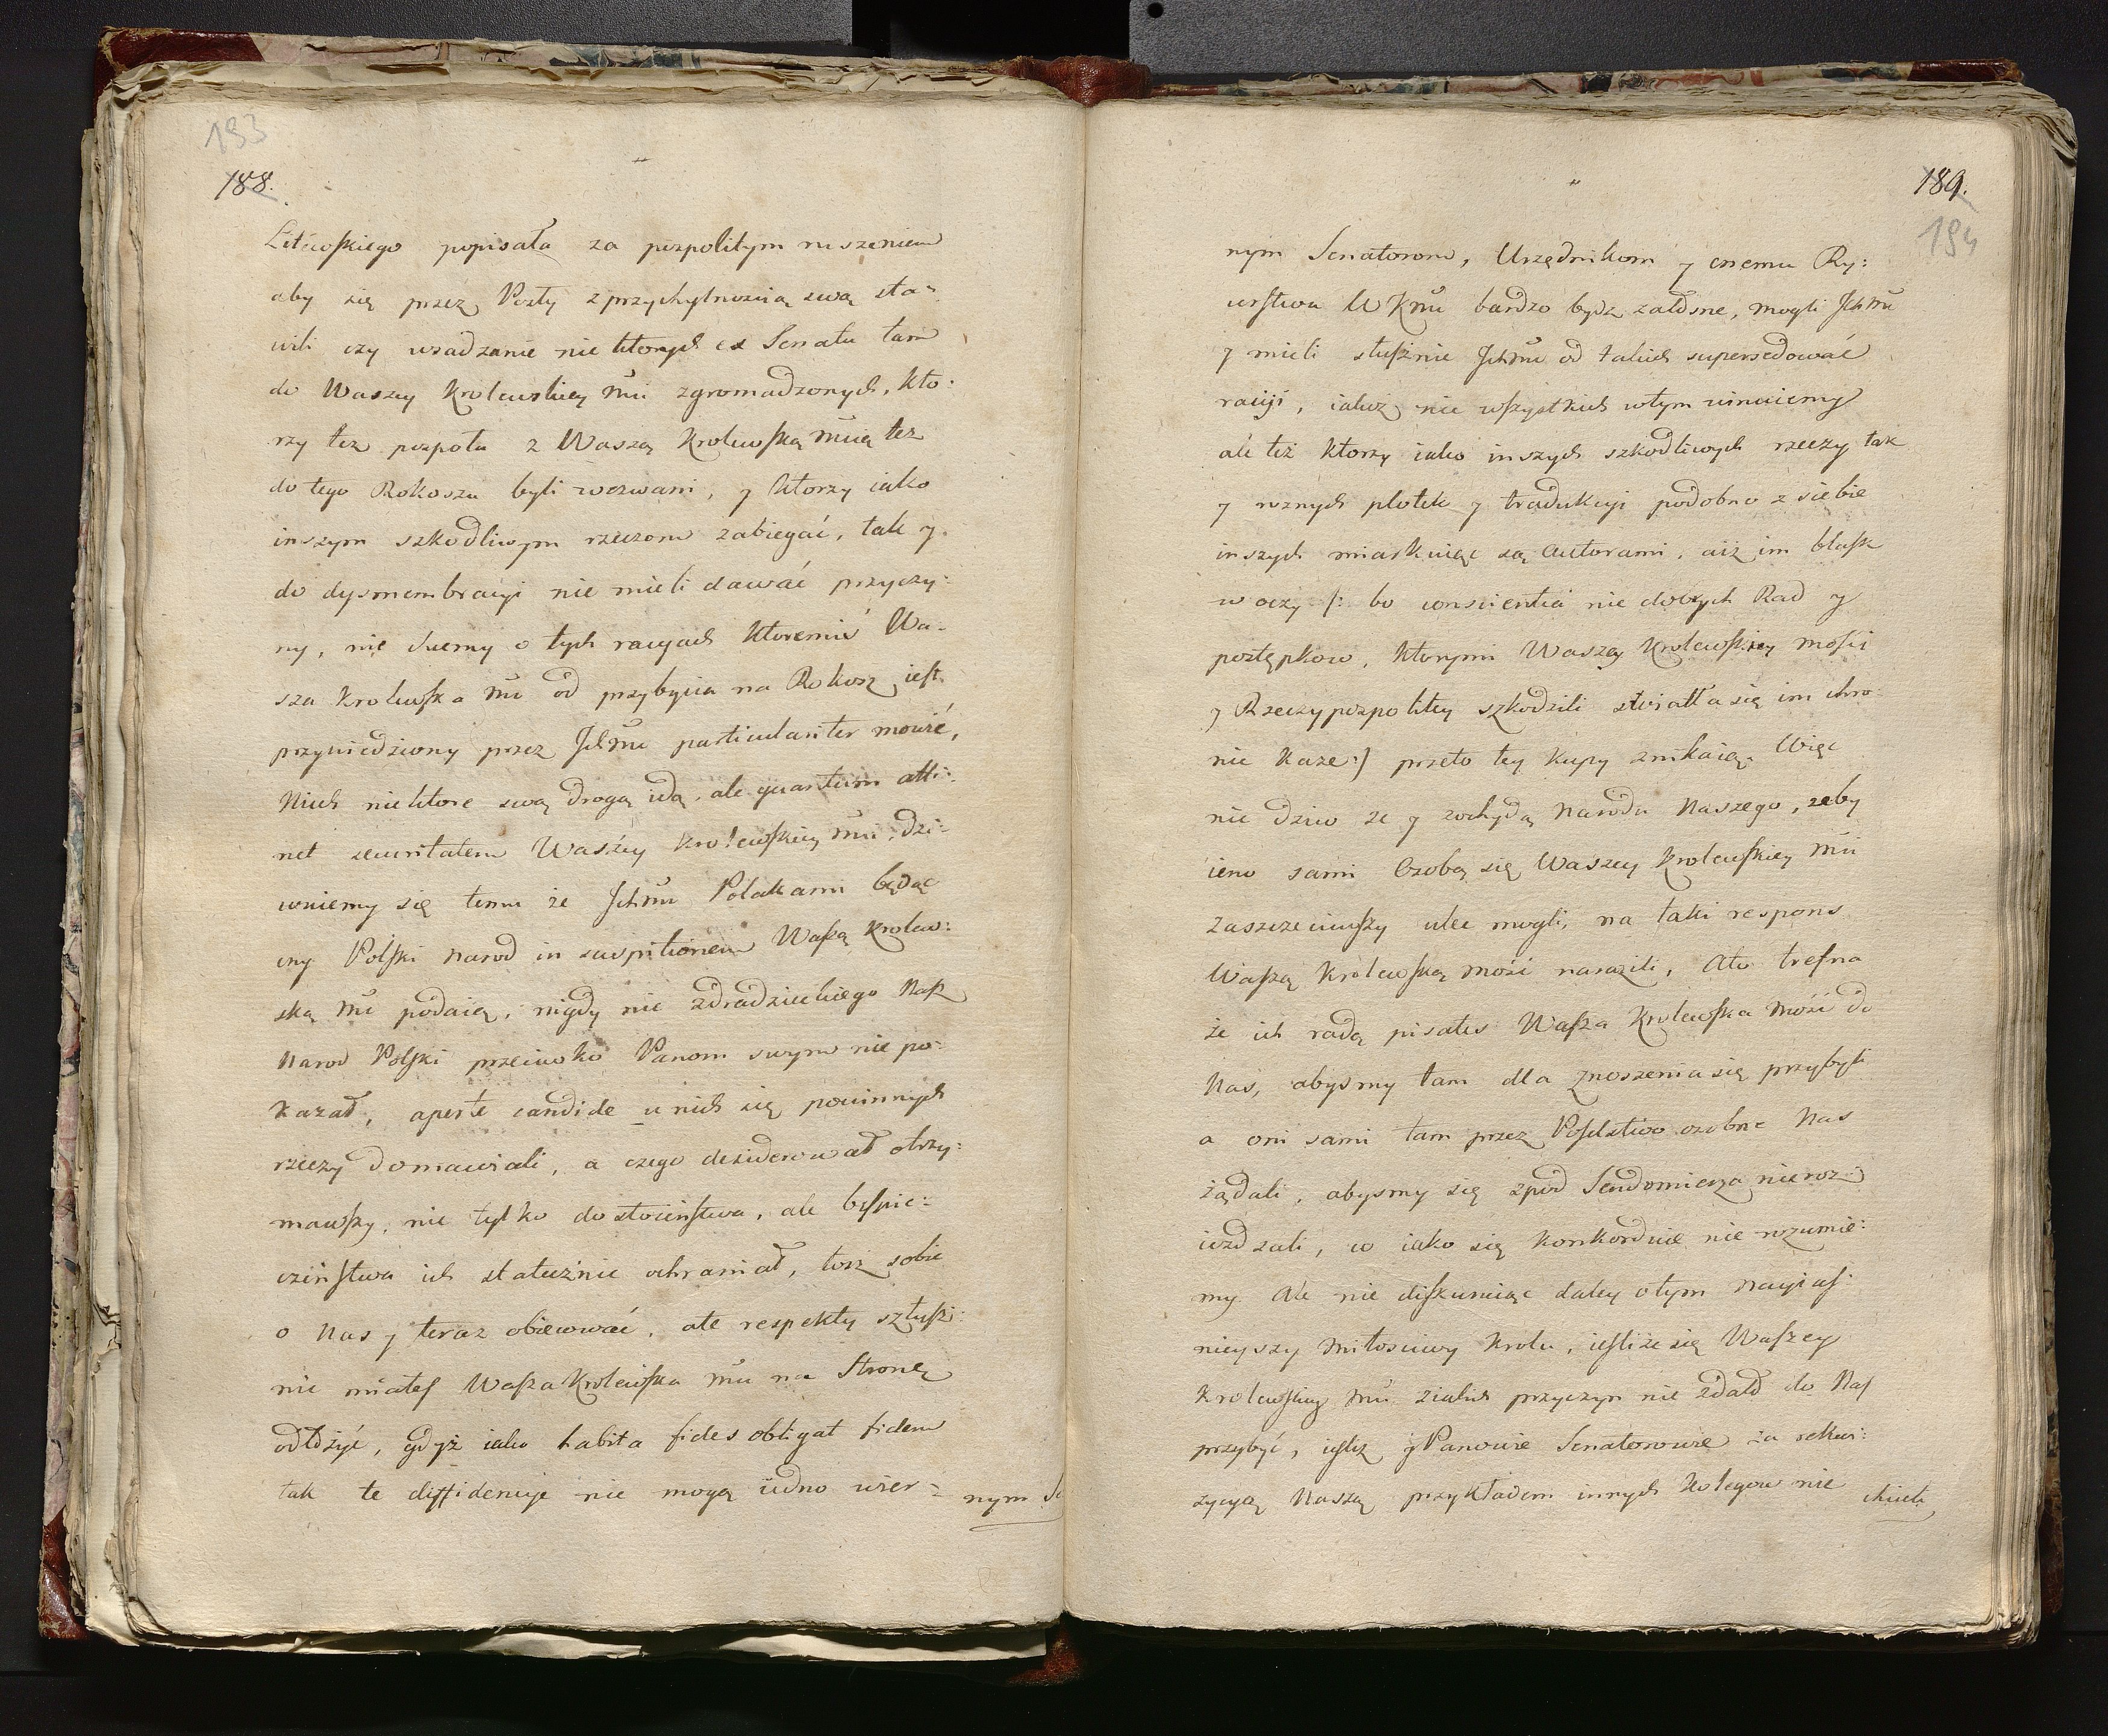 193
188.
Litewskiego popisała za pospolitym ruszeniem
aby się przez Posły z przychylnością swą sta=
wili czy wsadzanie niektorych ex Senatu tam
do Waszey Krolewskiey Mći zgromadzonych, kto:
rzy też pospołu z Waszą Krolewską Mcią też
do tego Rokoszu byli wezwani, y ktorzy iako
inszym szkodliwym rzeczom zabiegać, tak y
do dysmembracyi nie mieli dawać przyczy:
ny, nie chcemy o tych racyach ktoremiś Wa=
sza Krolewska Mć od przybycia na Rokosz iest
przywiedziony przez Ichmć particulariter mowić,
Niech niektore swą drogą idą, ale quantum atti:
net securitatem Waszey Krolewskiey Mći, dzi:
wuiemy się temu że Ichmć Polakami będąc
cny Polski Narod in suspitionem Waszą Krolew:
ską Mć podaią, nigdy nic zdradzieckiego Nasz
Narod Polski przeciwko Panom swym nie po:
kazał, aperte candide u nich się powinnych
rzeczy domawiali, a czego desiderował otrzy:
mawszy, nie tylko dostoieństwa, ale beśpie:
czeństwa ich statecznie ochraniał, toż sobie
o Nas y teraz obiecować, ale respekty szłuszn:
nie miałeś Wasza Krolewska Mć na Stronę
odłożyć, gdyż iako habita fides obligat fidem
tak te diffidencyje nie mogą iedno wier=
nym Se
189.
194
nym Senatorom, Urzędnikom y cnemu Ry:
cerstwu W Kmć bardzo bydz żałosne, mogli Ichmć
y mieli słusznie Ichmć od takich supersedować
racyi, iakoż nie wszystkich w tym winuiemy
ale też ktorzy iako inszych szkodliwych rzeczy tak
y roznych plotek y tradukcyi podobno z siebie
inszych miarkuiąc są Autorami, aiż im blask
w oczy /: bo conscientia nie dobrych Rad y
postępkow, ktorymi Waszey Krolewskiey Mości
y Rzeczypospolitey szkodzili światła się im chro:
nic każe :/ przeto tey kupy znikaią. Więc
nie dziw że y z ochydą Narodu Naszego, żeby
ieno sami Osobą się Waszey Krolewskiey Mći
zaszczeciwszy ulec mogli, na taki respons
Waszą Krolewską Mość narazili, Ato trefna
że ich radą pisałeś Wasza Krolewska Mość do
Nas, abysmy tam dla znoszenia się przybyli
a oni sami tam przez Poselstwo osobne Nas
żądali, abysmy się zpod Sendomierza nieroz
iezdzali, co iako się konkorduie nie rozumie:
my. Ale nie diskuruiąc daley o tym Nayias:
nieyszy Miłosciwy Krolu, ieśliże się Waszey
Krolewskiey Mći z iakich przyczyn nie zdało do Nas
przybyć, iesliż y Panowie Senatorowie za rekwi:
zycyą Naszą przykładem innych Kolegow nie
chcieli